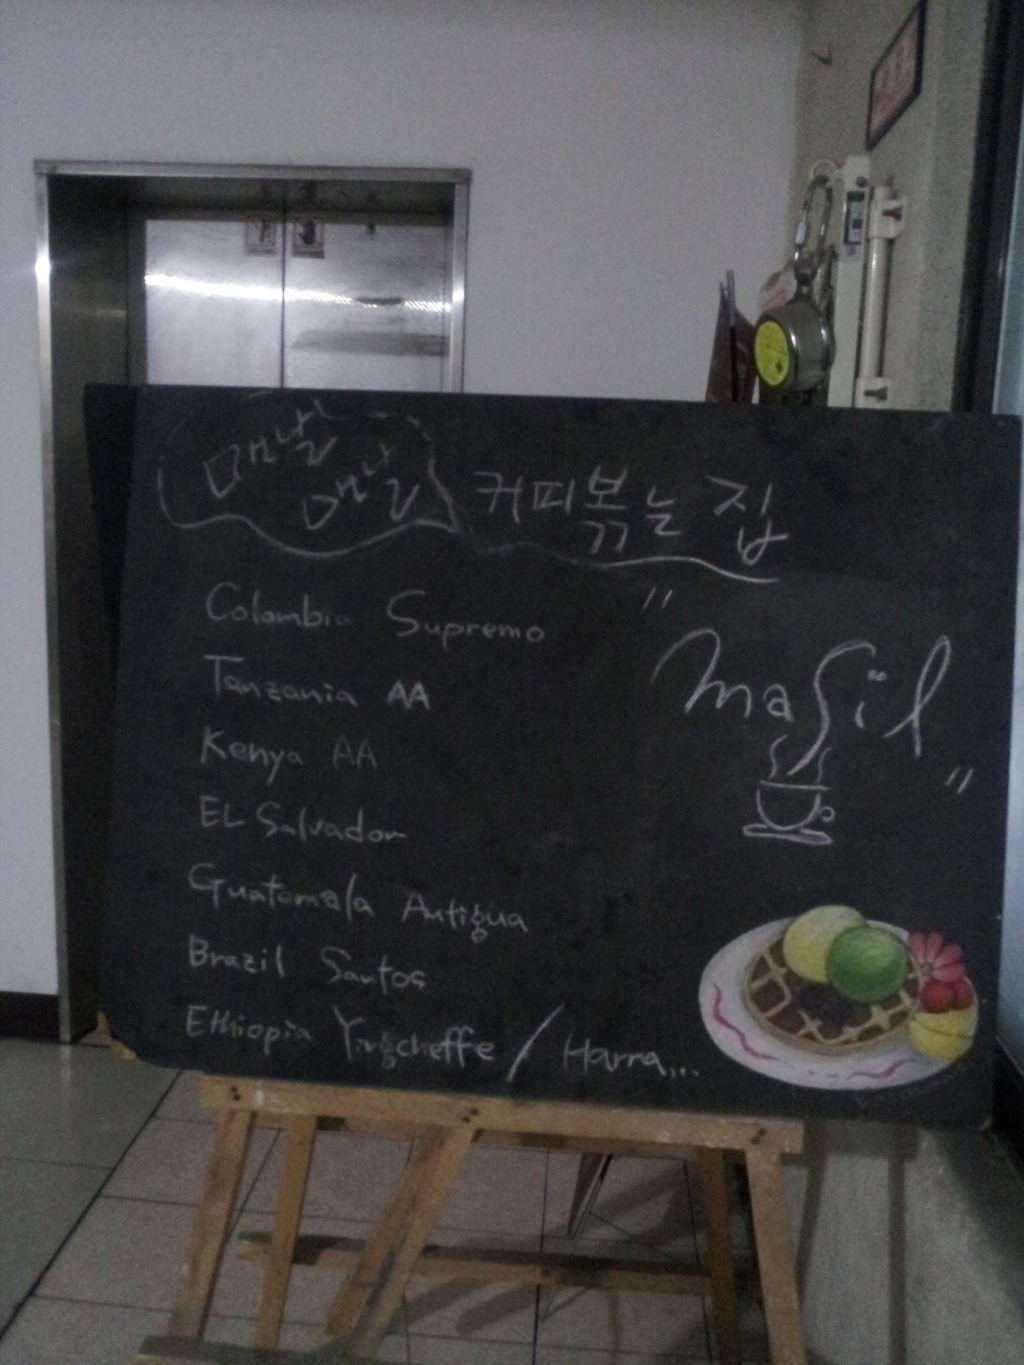 매날
매날
커피볶는 집
Colombia Supremo
"masil"
Tanzania AA
Kenya AA
EL Salvador
Guatemala Antigua
Brazil Santos
Ethiopia Yirgcheffe / Harra...